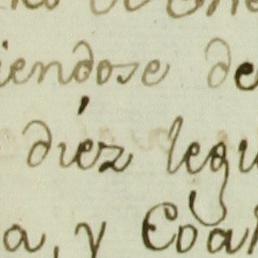 iendose de
diéz legu
a, y Coah